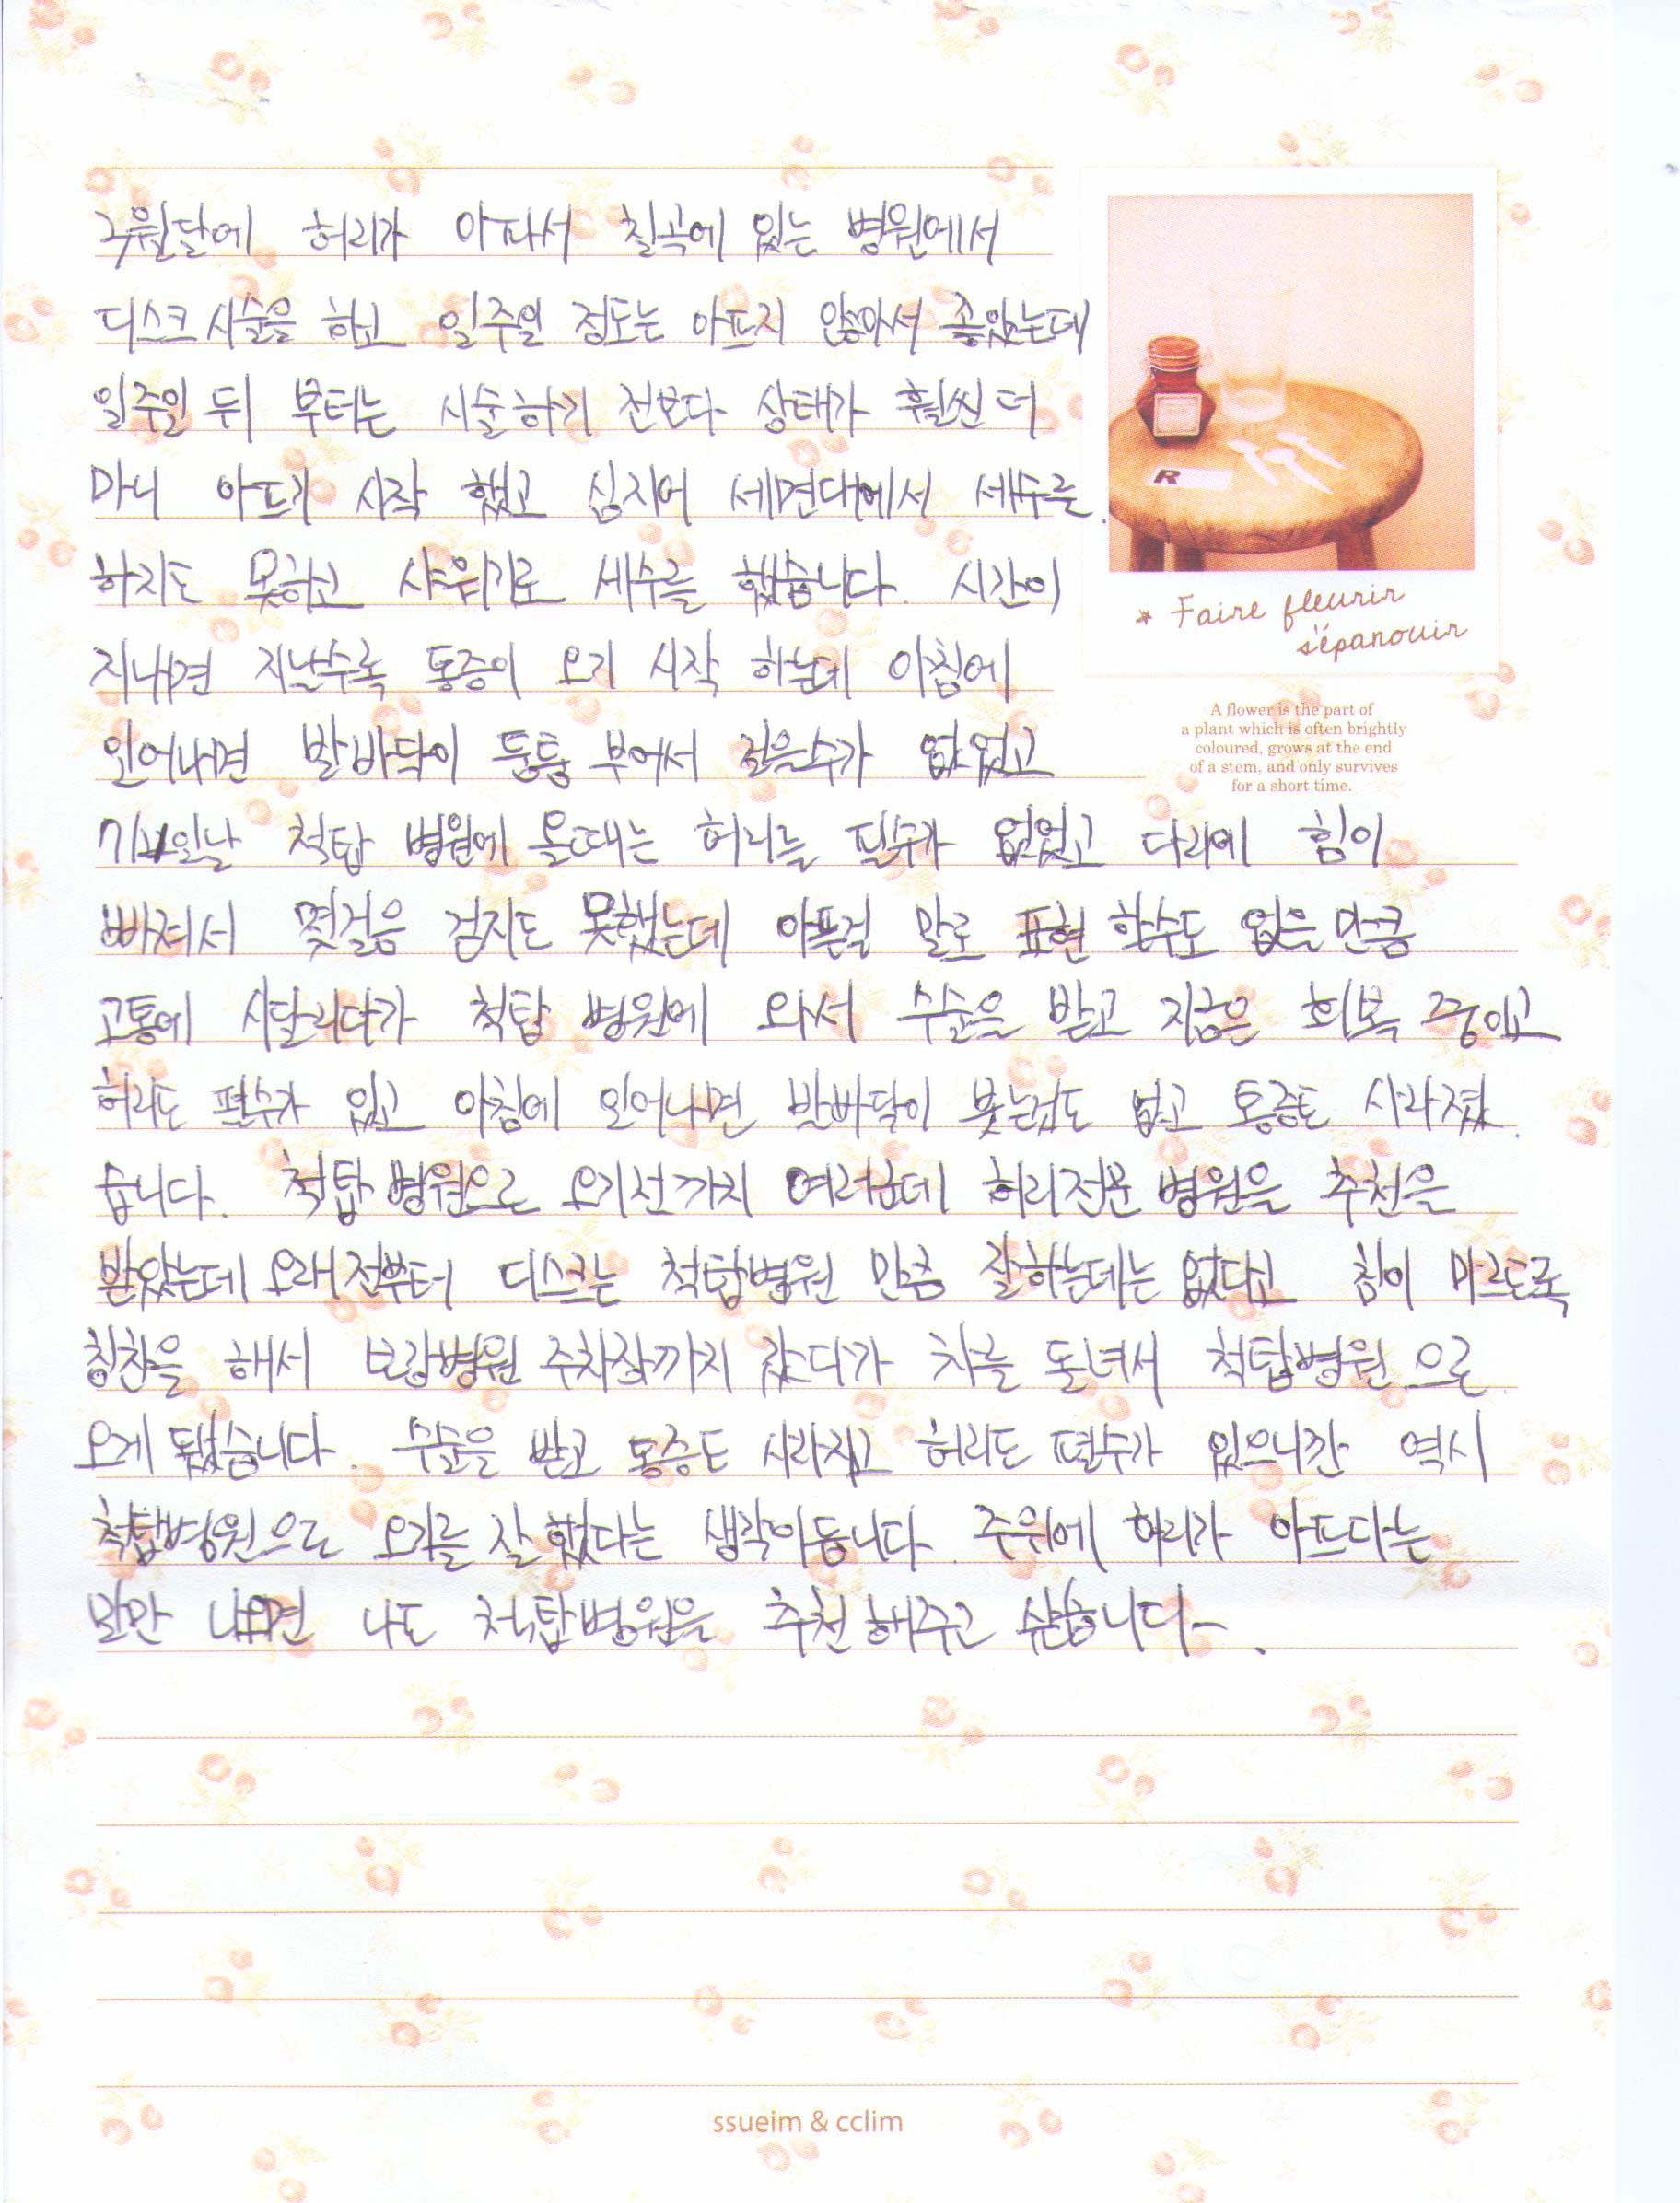 구월달에 허리가 아파서 칠곡에 있는 병원에서
디스크 시술을 하고 일주일 정도는 아프지 않아서 좋았는데
일주일 뒤 부터는 시술하기 전보다 상태가 훨씬 더
마니 아프기 시작 했고 심지어 세면대에서 세수를
하지도 못하고 샤워기로 세수를 했습니다. 시간이
지나면 지날수록 통증이 오기 시작 하는데 아침에
일어나면 발바닥이 퉁퉁 부어서 걸을수가 없었고
척탑 병원에 올때는 허리를 필수가 없었고 다리에 힘이
빠져서 몇걸음 걷지도 못했는데 아픈걸 말로 표현 할수도 없을 만큼
고통에 시달리다가 척탑 병원에 와서 수술을 받고 지금은 회복 중이고
허리도 펼수가 있고 아침에 일어나면 발바닥이 붓는것도 없고 통증도 사라졌
습니다. 척탑 병원으로 오기전까지 여러군데 허리전문 병원을 추천을
받았는데 오래전부터 디스크는 척탑병원 만큼 잘하는데는 없다고 침이 마르도록
칭찬을 해서 보강병원 주차장까지 갔다가 차를 돌려서 척탑병원 으로
오게 됐습니다. 수술을 받고 통증도 사라지고 허리도 펼수가 있으니깐 역시
척탑병원으로 오기를 잘 했다는 생각이 듭니다. 주위에 허리가 아프다는
말만 나오면 나도 척탑병원을 추천해주고 싶습니다.
* Faire fleurir
s'épanouir
A flower is the part of
a plant which is often brightly
coloured, grows at the end
of a stem, and only survives
for a short time.
R
ssueim & cclim